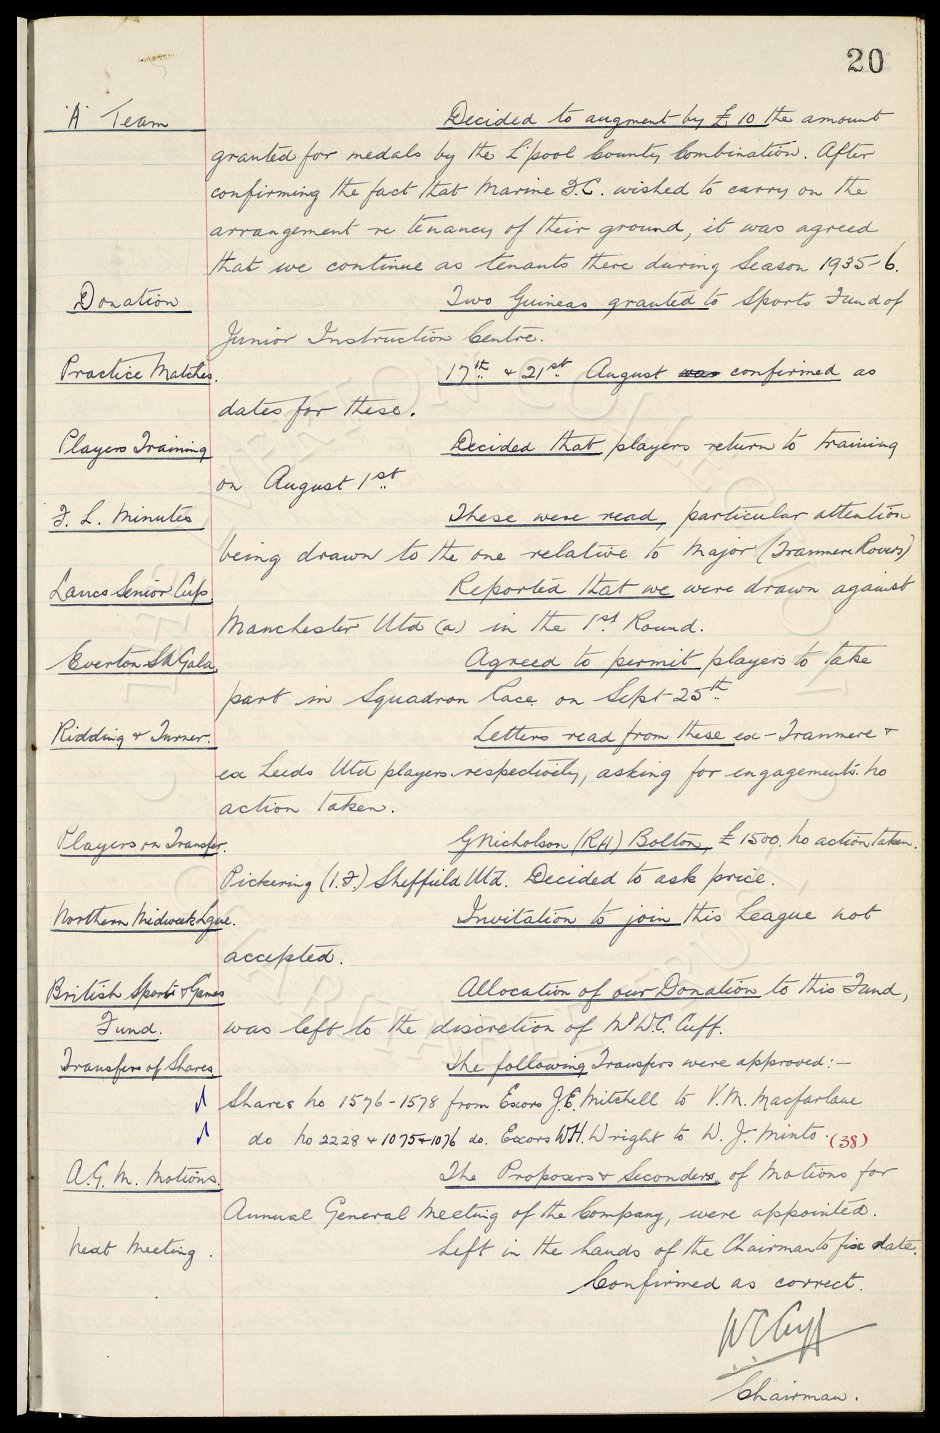 20
'A' Team Decided to augment by £10 the amount
granted for medals by the L'pool County Combination. After
confirming the fact that Marine F.C. wished to carry on the
arrangement re tenancy of their ground, it was agreed
that we continue as tenants there during Season 1935-6.
Donation Two Guineas granted to Sports Fund of
Junior Instruction Centre.
Practice Matches. 17th & 21st August was confirmed as
dates for these.
Players Training Decided that players return to training
on August 1st
F. L. Minutes These were read, particular attention
being drawn to the one relative to Major (Tranmere Rovers)
Lancs Senior Cup Reported that we were drawn against
Manchester Utd (a) in the 1st Round.
Everton Gala Agreed to permit players to take
part in Squadron Race on Sept 25th
Ridding & Turner. Letters read from these ex-Tranmere &
ex Leeds Utd players respectively, asking for engagements. No
action taken.
Players on Transfer. G Nicholson (RH) Bolton, £1500. No action taken.
Pickering (I.F.) Sheffield Utd. Decided to ask price.
Northern Midweek Lgue. Invitation to join this League not
accepted.
British Sports & Games Allocation of our Donation to this Fund,
Fund. was left to the discretion of Mr W.C. Cuff.
Transfers of Shares The following Transfers were approved:-
Shares No 1576-1578 from Excors J.E. Mitchell to V.M. Macfarlane
do No 2228 & 1075 & 1076 do. Excors W.H. Wright to W. J. Minto. (38)
A.G.M. Motions. The Proposers & Seconders, of Motions for
Annual General Meeting of the Company, were appointed.
Next Meeting. Left in the hands of the Chairman to fix date.
Confirmed as correct.
WC Cuff
Chairman.